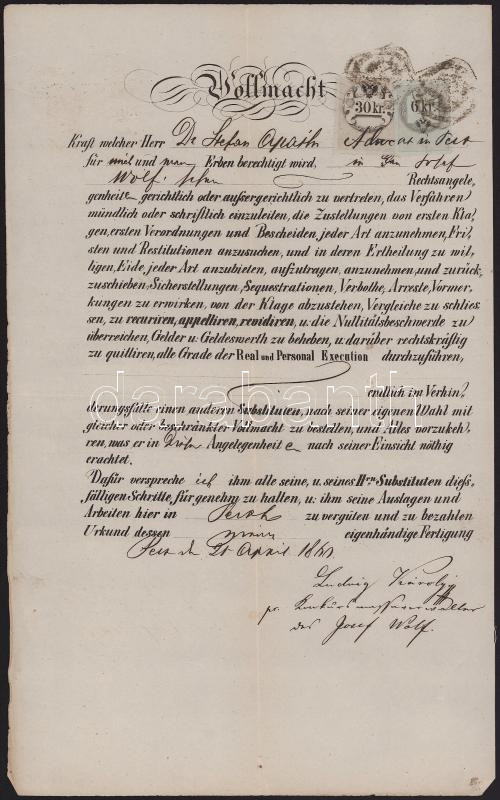 Vollmacht
30 kr. 6 kr
Kraft welcher Herr Dr Stefan Advocat in Pest
für mich und Erben berechtigt wird, in
Wolf Rechtsangele,
genheite gerichtlich oder außergerichtlich zu vertreten, das Verfahren
mündlich oder schriftlich einzuleiten, die Zustellungen von ersten Kla,
gen, ersten Verordnungen und Bescheiden, jeder Art anzunehmen, Fri,
sten und Restitutionen anzusuchen, und in deren Ertheilung zu wil,
ligen, Eide, jeder Art anzubieten, aufzutragen, anzunehmen, und zurück,
zuschieben, Sicherstellungen, Sequestrationen, Verbothe, Arreste, Vormer,
kungen zu erwirken, von der Klage abzustehen, Vergleiche zu schlies
sen, zu recuriren, appelliren, revidiren, u. die Nullitätsbeschwerde zu
überreichen, Gelder u. Geldeswerth zu beheben, u. darüber rechtskräftig
zu quittiren, alle Grade der Real und Personal Execution durchzuführen,
endlich im Verhin,
derungsfalle einen anderen Substituten, nach seiner eigenen Wahl mit
gleicher oder beschränkter Vollmacht zu bestellen, und Alles vorzukeh,
ren, was er in dieser Angelegenheit e nach seiner Einsicht nöthig
erachtet.
Dafür verspreche ich ihm alle seine, u. seines Hrn Substituten dieß,
fälligen Schritte, für genehm zu halten, u. ihm seine Auslagen und
Arbeiten hier in Pesth zu vergüten und zu bezahlen
Urkund dessen meine eigenhändige Fertigung
Pest den April
Ludwig Károlyi
pr. Konkursmasseverwalter
des Josef Wolf.
darabanth